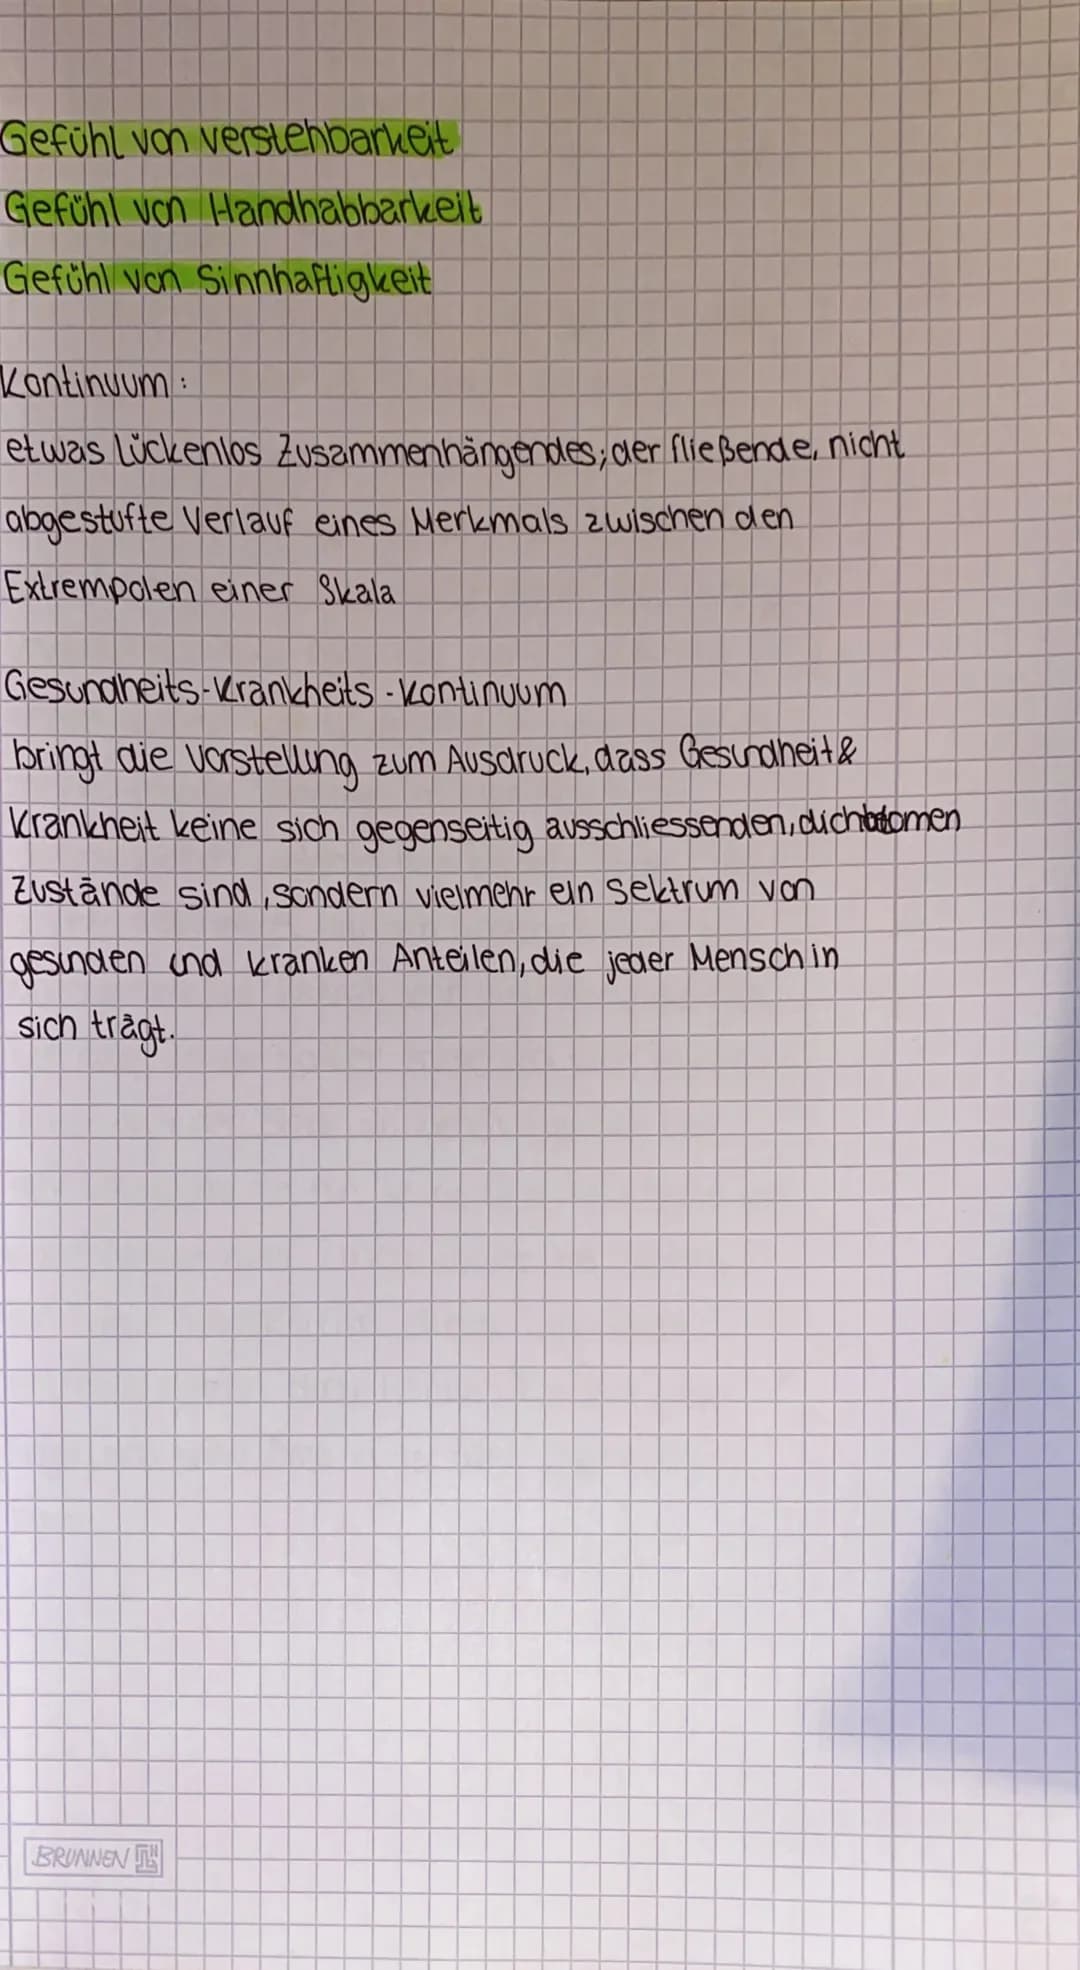 Gefühl von verstehbarkeit
Gefühl von Handhabbarkeit
Gefühl von Sinnhaftigkeit
Kontinuum:
etwas Lückenlos Zusammenhängendes; der fließende, nicht
abgestufte Verlauf eines Merkmals zwischen den
Extrempolen einer Skala
Gesundheits-Krankheits-kontinuum
bringt die Vorstellung zum Ausdruck, dass Gesundheit &
Krankheit keine sich gegenseitig ausschliessenden,
Zustände sind, sondern vielmehr ein Sektrum von
gesunden und kranken Anteilen, die jeder Mensch in
sich trägt.
BRUNNEN